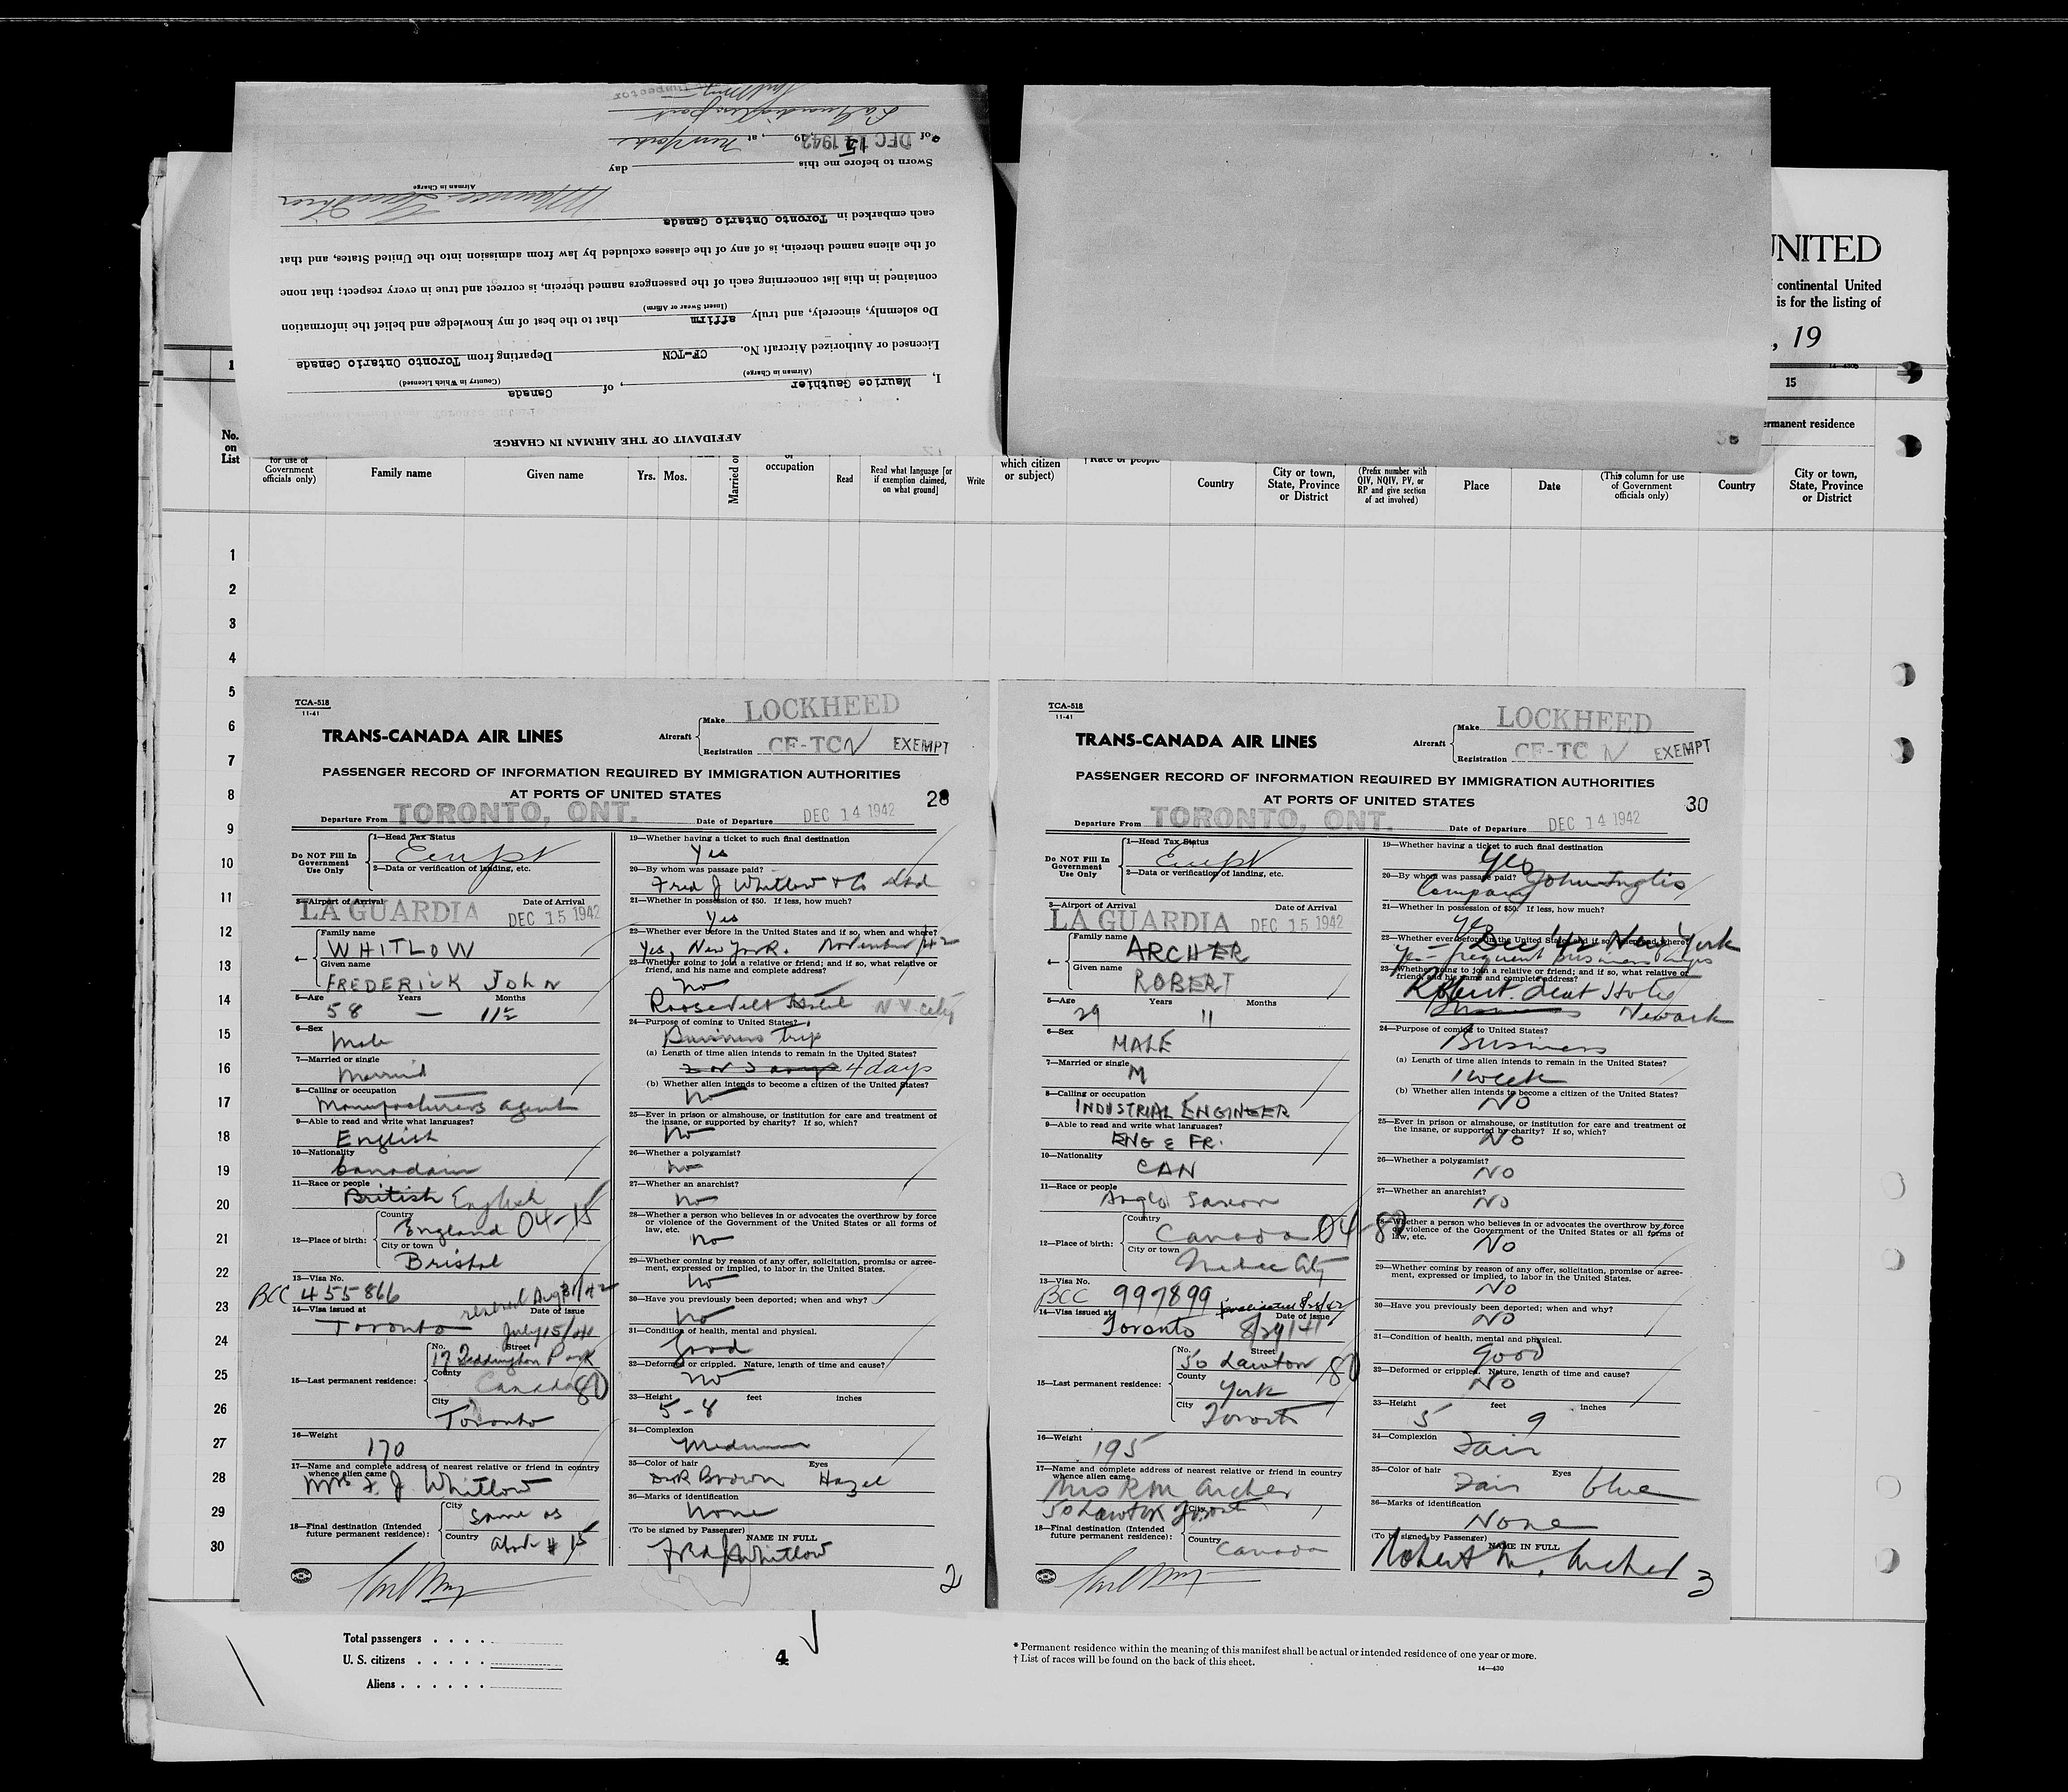 AFFIDAVIT OF THE AIRMAN IN CHARGE
I, Maurice Gauthier, of Canada
(Airman in Charge) (Country in Which Licensed)
Licensed or Authorized Aircraft No. CF-TCN Departing from Toronto Ontario Canada
Do solemnly, sincerely, and truly affirm that to the best of my knowledge and belief the information
(Insert Swear or Affirm)
contained in this list concerning each of the passengers named therein, is correct and true in every respect; that none
of the aliens named therein, is of any of the classes excluded by law from admission into the United States, and that
each embarked in Toronto Ontario Canada
Airman in Charge
Sworn to before me this day
of DEC 15 1942, 19, at New York
Inspector
UNITED
continental United
is for the listing of
, 19
14-430
1
15
ermanent residence
No.
on
List
for use of
Government
officials only)
Family name
Given name
Yrs. Mos.
Married or
occupation
Read
Read what language [or
if exemption claimed,
on what ground]
Write
which citizen
or subject)
†Race or people
Country
City or town,
State, Province
or District
(Prefix number with
QIV, NQIV, PV, or
RP and give section
of act involved)
Place
Date
(This column for use
of Government
officials only)
Country
City or town,
State, Province
or District
1
2
3
4
5
6
7
8
9
10
11
12
13
14
15
16
17
18
19
20
21
22
23
24
25
26
27
28
29
30
TCA-518
11-41
TRANS-CANADA AIR LINES
Aircraft
Make LOCKHEED
Registration CF-TCN EXEMPT
PASSENGER RECORD OF INFORMATION REQUIRED BY IMMIGRATION AUTHORITIES
AT PORTS OF UNITED STATES
28
Departure From TORONTO, ONT. Date of Departure DEC 14 1942
Do NOT Fill In
Government
Use Only
1—Head Tax Status
Exempt
2—Data or verification of landing, etc.
3—Airport of Arrival Date of Arrival
LA GUARDIA DEC 15 1942
4—
Family name
WHITLOW
Given name
FREDERICK JOHN
5—Age Years Months
58 — 11½
6—Sex
Male
7—Married or single
Married
8—Calling or occupation
Manufacturers agent
9—Able to read and write what languages?
English
10—Nationality
Canadian
11—Race or people
British English
12—Place of birth:
Country
England 04-15
City or town
Bristol
13—Visa No.
BCC 455866 Aug 31/42
14—Visa issued at Date of issue
Toronto July 15/41
15—Last permanent residence:
No. Street
17 Teddington Park
County
Canada 80
City
Toronto
16—Weight
170
17—Name and complete address of nearest relative or friend in country
whence alien came
Mrs F. J. Whitlow
18—Final destination (Intended
future permanent residence):
City
Same as
Country
above # 15
19—Whether having a ticket to such final destination
Yes
20—By whom was passage paid?
Fred J Whitlow & Co Ltd
21—Whether in possession of $50. If less, how much?
Yes
22—Whether ever before in the United States and if so, when and where?
Yes, New York. November /42
23—Whether going to join a relative or friend; and if so, what relative or
friend, and his name and complete address?
No
Roosevelt Hotel N Y City
24—Purpose of coming to United States?
Business trip
(a) Length of time alien intends to remain in the United States?
2 or 3 days 4 days
(b) Whether alien intends to become a citizen of the United States?
No
25—Ever in prison or almshouse, or institution for care and treatment of
the insane, or supported by charity? If so, which?
No
26—Whether a polygamist?
No
27—Whether an anarchist?
No
28—Whether a person who believes in or advocates the overthrow by force
or violence of the Government of the United States or all forms of
law, etc.
No
29—Whether coming by reason of any offer, solicitation, promise or agree-
ment, expressed or implied, to labor in the United States.
No
30—Have you previously been deported; when and why?
No
31—Condition of health, mental and physical.
Good
32—Deformed or crippled. Nature, length of time and cause?
No
33—Height feet inches
5-8
34—Complexion
Medium
35—Color of hair Eyes
Dark Brown Hazel
36—Marks of identification
None
(To be signed by Passenger) NAME IN FULL
Fred J Whitlow
2
TCA-518
11-41
TRANS-CANADA AIR LINES
Aircraft
Make LOCKHEED
Registration CF-TC N EXEMPT
PASSENGER RECORD OF INFORMATION REQUIRED BY IMMIGRATION AUTHORITIES
AT PORTS OF UNITED STATES
30
Departure From TORONTO, ONT. Date of Departure DEC 14 1942
Do NOT Fill In
Government
Use Only
1—Head Tax Status
Exempt
2—Data or verification of landing, etc.
3—Airport of Arrival Date of Arrival
LA GUARDIA DEC 15 1942
4—
Family name
ARCHER
Given name
ROBERT
5—Age Years Months
29 11
6—Sex
MALE
7—Married or single
M
8—Calling or occupation
INDUSTRIAL ENGINEER
9—Able to read and write what languages?
ENG & FR.
10—Nationality
CAN
11—Race or people
Anglo Saxon
12—Place of birth:
Country
Canada 04-80
City or town
Quebec City
13—Visa No.
BCC 997899
14—Visa issued at Date of issue
Toronto 8/29/41
15—Last permanent residence:
No. Street
50 Lawton 80
County
York
City
Toronto
16—Weight
195
17—Name and complete address of nearest relative or friend in country
whence alien came
Mrs R M Archer
50 Lawton Toronto
18—Final destination (Intended
future permanent residence):
City
Country
Canada
19—Whether having a ticket to such final destination
Yes
20—By whom was passage paid? John Inglis
Company
21—Whether in possession of $50. If less, how much?
Yes
22—Whether ever before in the United States and if so, when and where?
Dec '42 New York
Yes – frequent business trips
23—Whether going to join a relative or friend; and if so, what relative or
friend, and his name and complete address?
Robert Treat Hotel
Newark
24—Purpose of coming to United States?
Business
(a) Length of time alien intends to remain in the United States?
1 week
(b) Whether alien intends to become a citizen of the United States?
NO
25—Ever in prison or almshouse, or institution for care and treatment of
the insane, or supported by charity? If so, which?
NO
26—Whether a polygamist?
NO
27—Whether an anarchist?
NO
28—Whether a person who believes in or advocates the overthrow by force
or violence of the Government of the United States or all forms of
law, etc.
NO
29—Whether coming by reason of any offer, solicitation, promise or agree-
ment, expressed or implied, to labor in the United States.
NO
30—Have you previously been deported; when and why?
NO
31—Condition of health, mental and physical.
Good
32—Deformed or crippled. Nature, length of time and cause?
NO
33—Height feet inches
5 9
34—Complexion
Fair
35—Color of hair Eyes
Fair blue
36—Marks of identification
None
(To be signed by Passenger) NAME IN FULL
Robert M. Archer
3
Total passengers
U. S. citizens
Aliens
4
* Permanent residence within the meaning of this manifest shall be actual or intended residence of one year or more.
† List of races will be found on the back of this sheet.
14—430